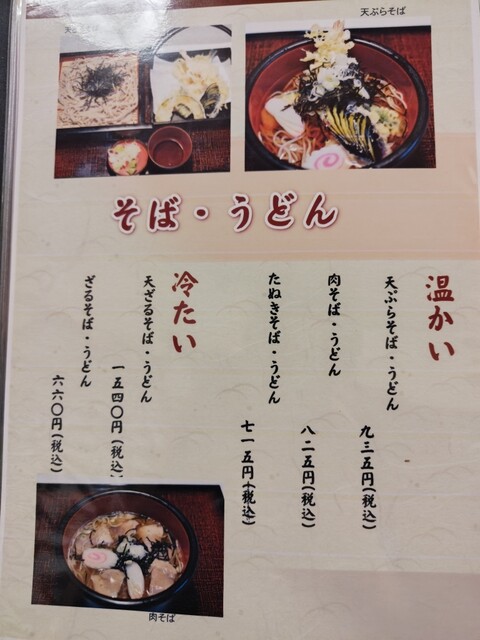 天ぷらそば
そば・うどん
温かい
天ぷらそば・うどん
九三五円(税込)
肉そば・うどん
八二五円(税込)
たぬきそば・うどん
七一五円(税込)
冷たい
天ざるそば・うどん
一五四〇円(税込)
ざるそば・うどん
六六〇円(税込)
肉そば